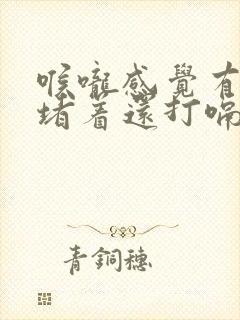 喉嚨感覺有
堵着還打嗝
青銅穗